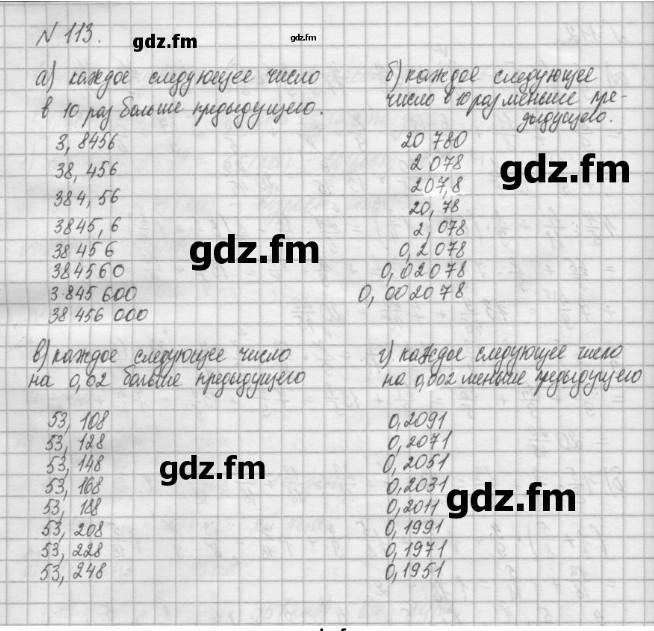 N 113.
gdz.fm
gdz.fm
а) каждое следующее число
в 10 раз больше предыдущего.
3,8456
38,456
384,56
3845,6
38456
384560
3845600
38 456 000
б) каждое следующее
число в 10 раз меньше пре-
дыдущего.
20 780
2 078
207,8
20,78
2,078
0,2078
0,02078
0,002078
gdz.fm
gdz.fm
в) каждое следующее число
на 0,02 больше предыдущего
53,108
53,128
53,148
53,168
53,188
53,208
53,228
53,248
г) каждое следующее число
на 0,002 меньше предыдущего
0,2091
0,2071
0,2051
0,2031
0,2011
0,1991
0,1971
0,1951
gdz.fm
gdz.fm